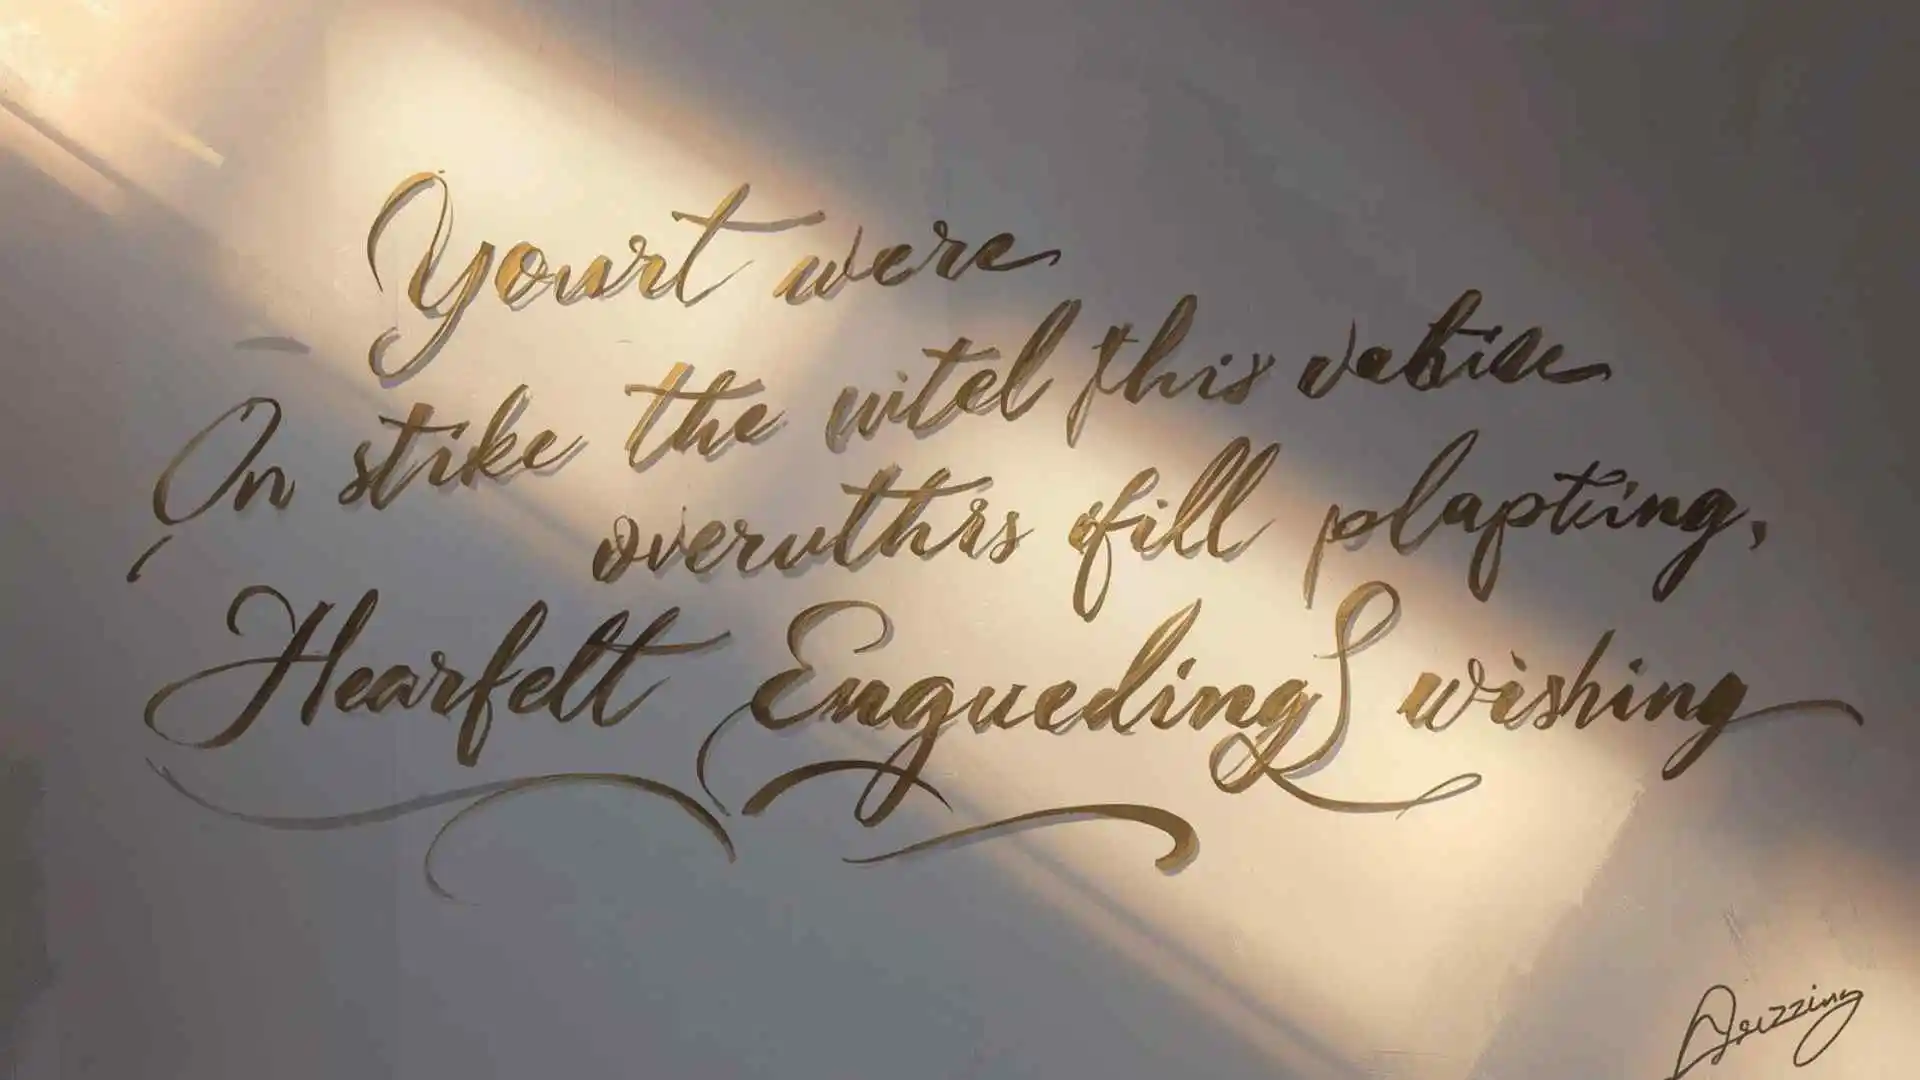 Yourt were
On strike the witel this vabise
overuthrs ofill plapting,
Hearfelt Engueding wishing